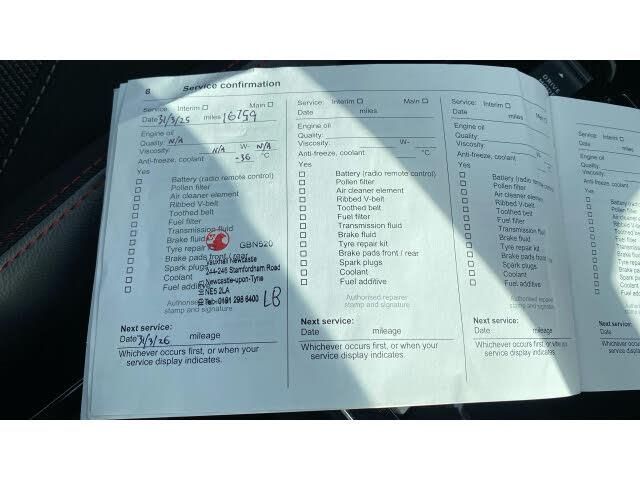 8 Service confirmation
Service: Interim Main
Date 31/3/25 miles 16759
Engine oil
Quality: N/A
Viscosity: N/A W- N/A
Anti-freeze, coolant -36 °C
Yes
Battery (radio remote control)
Pollen filter
Air cleaner element
Ribbed V-belt
Toothed belt
Fuel filter
Transmission fluid
Brake fluid
Tyre repair
Brake pads front / rear
Spark plugs
Coolant
Fuel additive
GBN520
Vauxhall Newcastle
244-246 Stamfordham Road
Newcastle-upon-Tyne
NE5 2LA
Tel: 0191 298 6400
LB
Authorised repairer
stamp and signature
Next service:
Date 31/3/26 mileage
Whichever occurs first, or when your
service display indicates.
Service: Interim Main
Date miles
Engine oil
Quality:
Viscosity: W-
Anti-freeze, coolant °C
Yes
Battery (radio remote control)
Pollen filter
Air cleaner element
Ribbed V-belt
Toothed belt
Fuel filter
Transmission fluid
Brake fluid
Tyre repair kit
Brake pads front / rear
Spark plugs
Coolant
Fuel additive
Authorised repairer
stamp and signature
Next service:
Date mileage
Whichever occurs first, or when your
service display indicates.
Service: Interim
Date miles
Engine oil
Quality:
Viscosity: W-
Anti-freeze, coolant
Yes
Battery (radio remote
Pollen filter
Air cleaner element
Ribbed V-belt
Toothed belt
Fuel filter
Transmission fluid
Brake fluid
Tyre repair kit
Brake pads front
Spark plugs
Coolant
Fuel additive
Authorised repairer
stamp and signature
Next service:
Date mileage
Whichever occurs first, or when
service display indicates.
Service:
Date
Engine oil
Quality:
Viscosity:
Anti-freeze, coolant
Yes
Next service
Date
Whichever
DRIVE